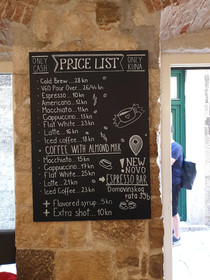 ONLY CASH
PRICE LIST
ONLY KUNA
Cold Brew ... 28 kn
V60 Pour Over ... 26/44 kn
Espresso ... 10 kn
Americano ... 12 kn
Macchiato ... 12 kn
Cappuccino ... 13 kn
Flat White ... 23 kn
Latte ... 16 kn
Iced coffee ... 18 kn
COFFEE WITH ALMOND MILK
Macchiato ... 15 kn
Cappuccino ... 17 kn
Flat White ... 25 kn
Latte ... 21 kn
Iced Coffee ... 23 kn
+ Flavored syrup .. 5 kn
+ Extra shot ... 10 kn
! NEW NOVO
ESPRESSO BAR
Domovinskog
rata 35b